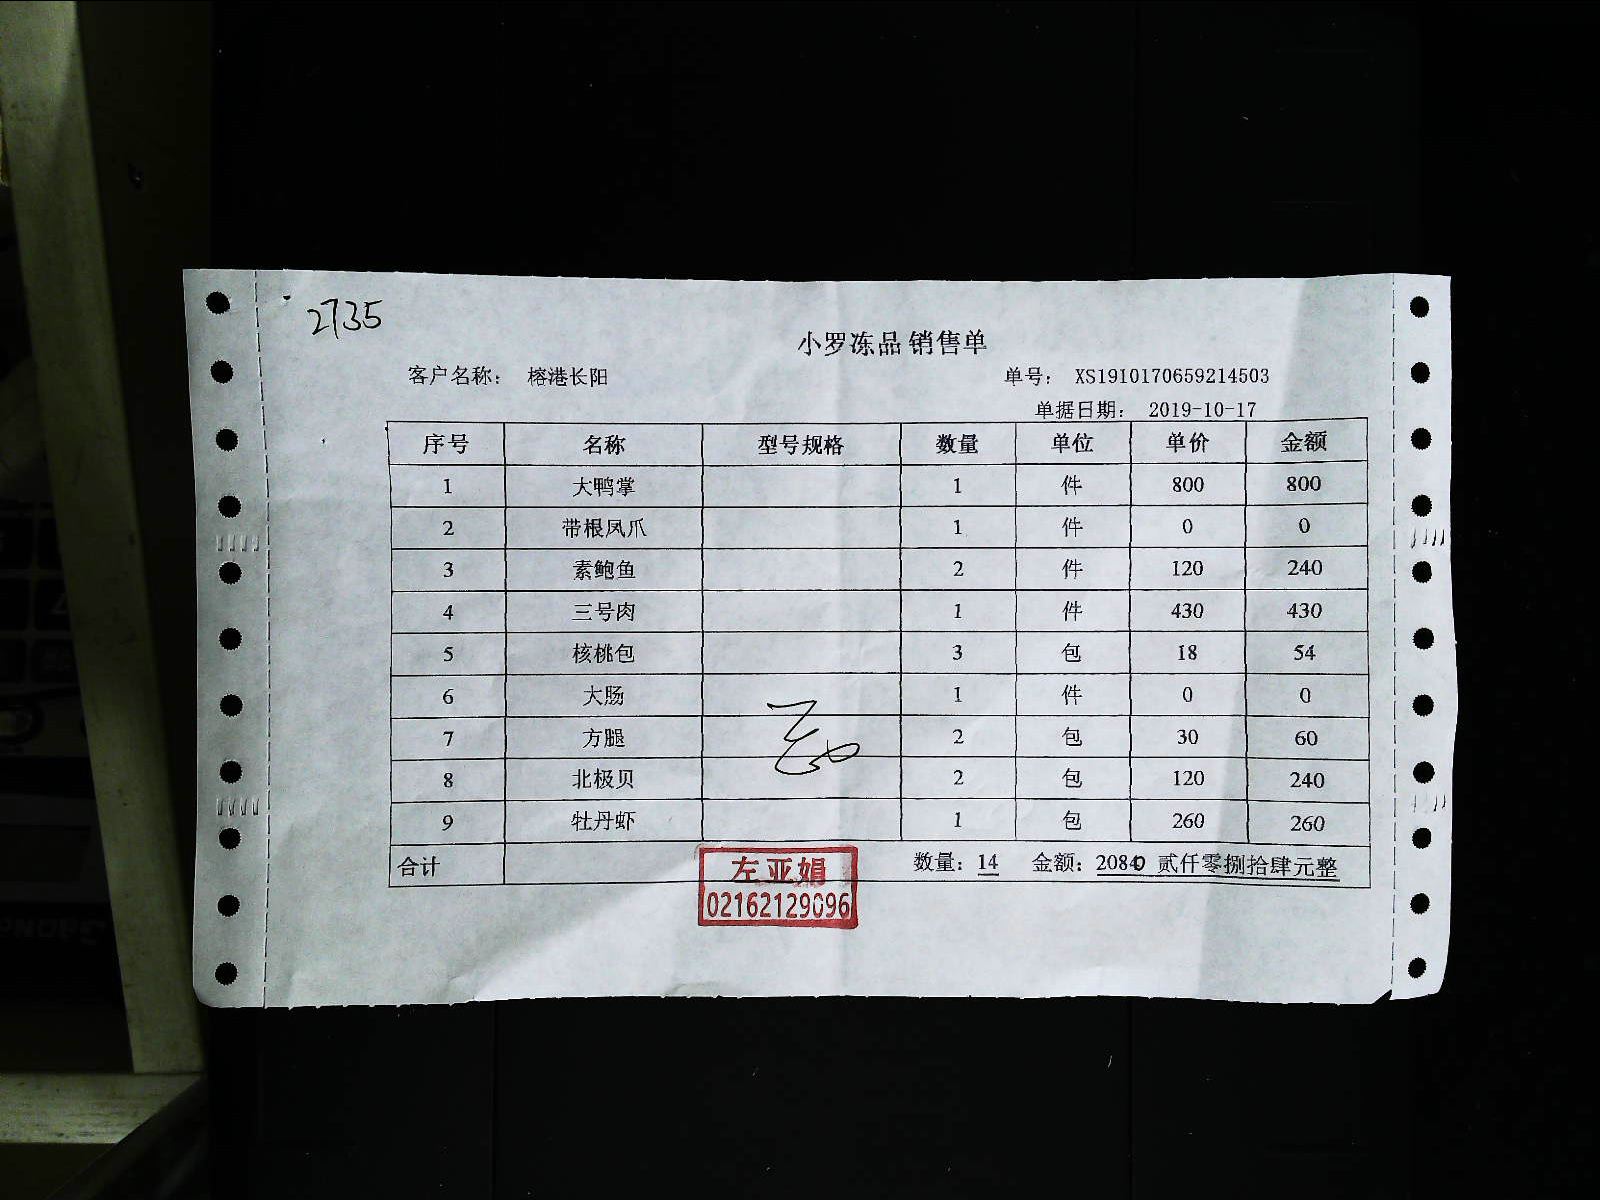 2735
小罗冻品 销售单
客户名称: 榕港长阳 单号: XS1910170659214503
单据日期: 2019-10-17
序号 名称 型号规格 数量 单位 单价 金额
1 大鸭掌 1 件 800 800
2 带根凤爪 1 件 0 0
3 素鲍鱼 2 件 120 240
4 三号肉 1 件 430 430
5 核桃包 3 包 18 54
6 大肠 1 件 0 0
7 方腿 2 包 30 60
8 北极贝 2 包 120 240
9 牡丹虾 1 包 260 260
合计 数量: 14 金额: 2084 贰仟零捌拾肆元整
左亚娟
02162129096